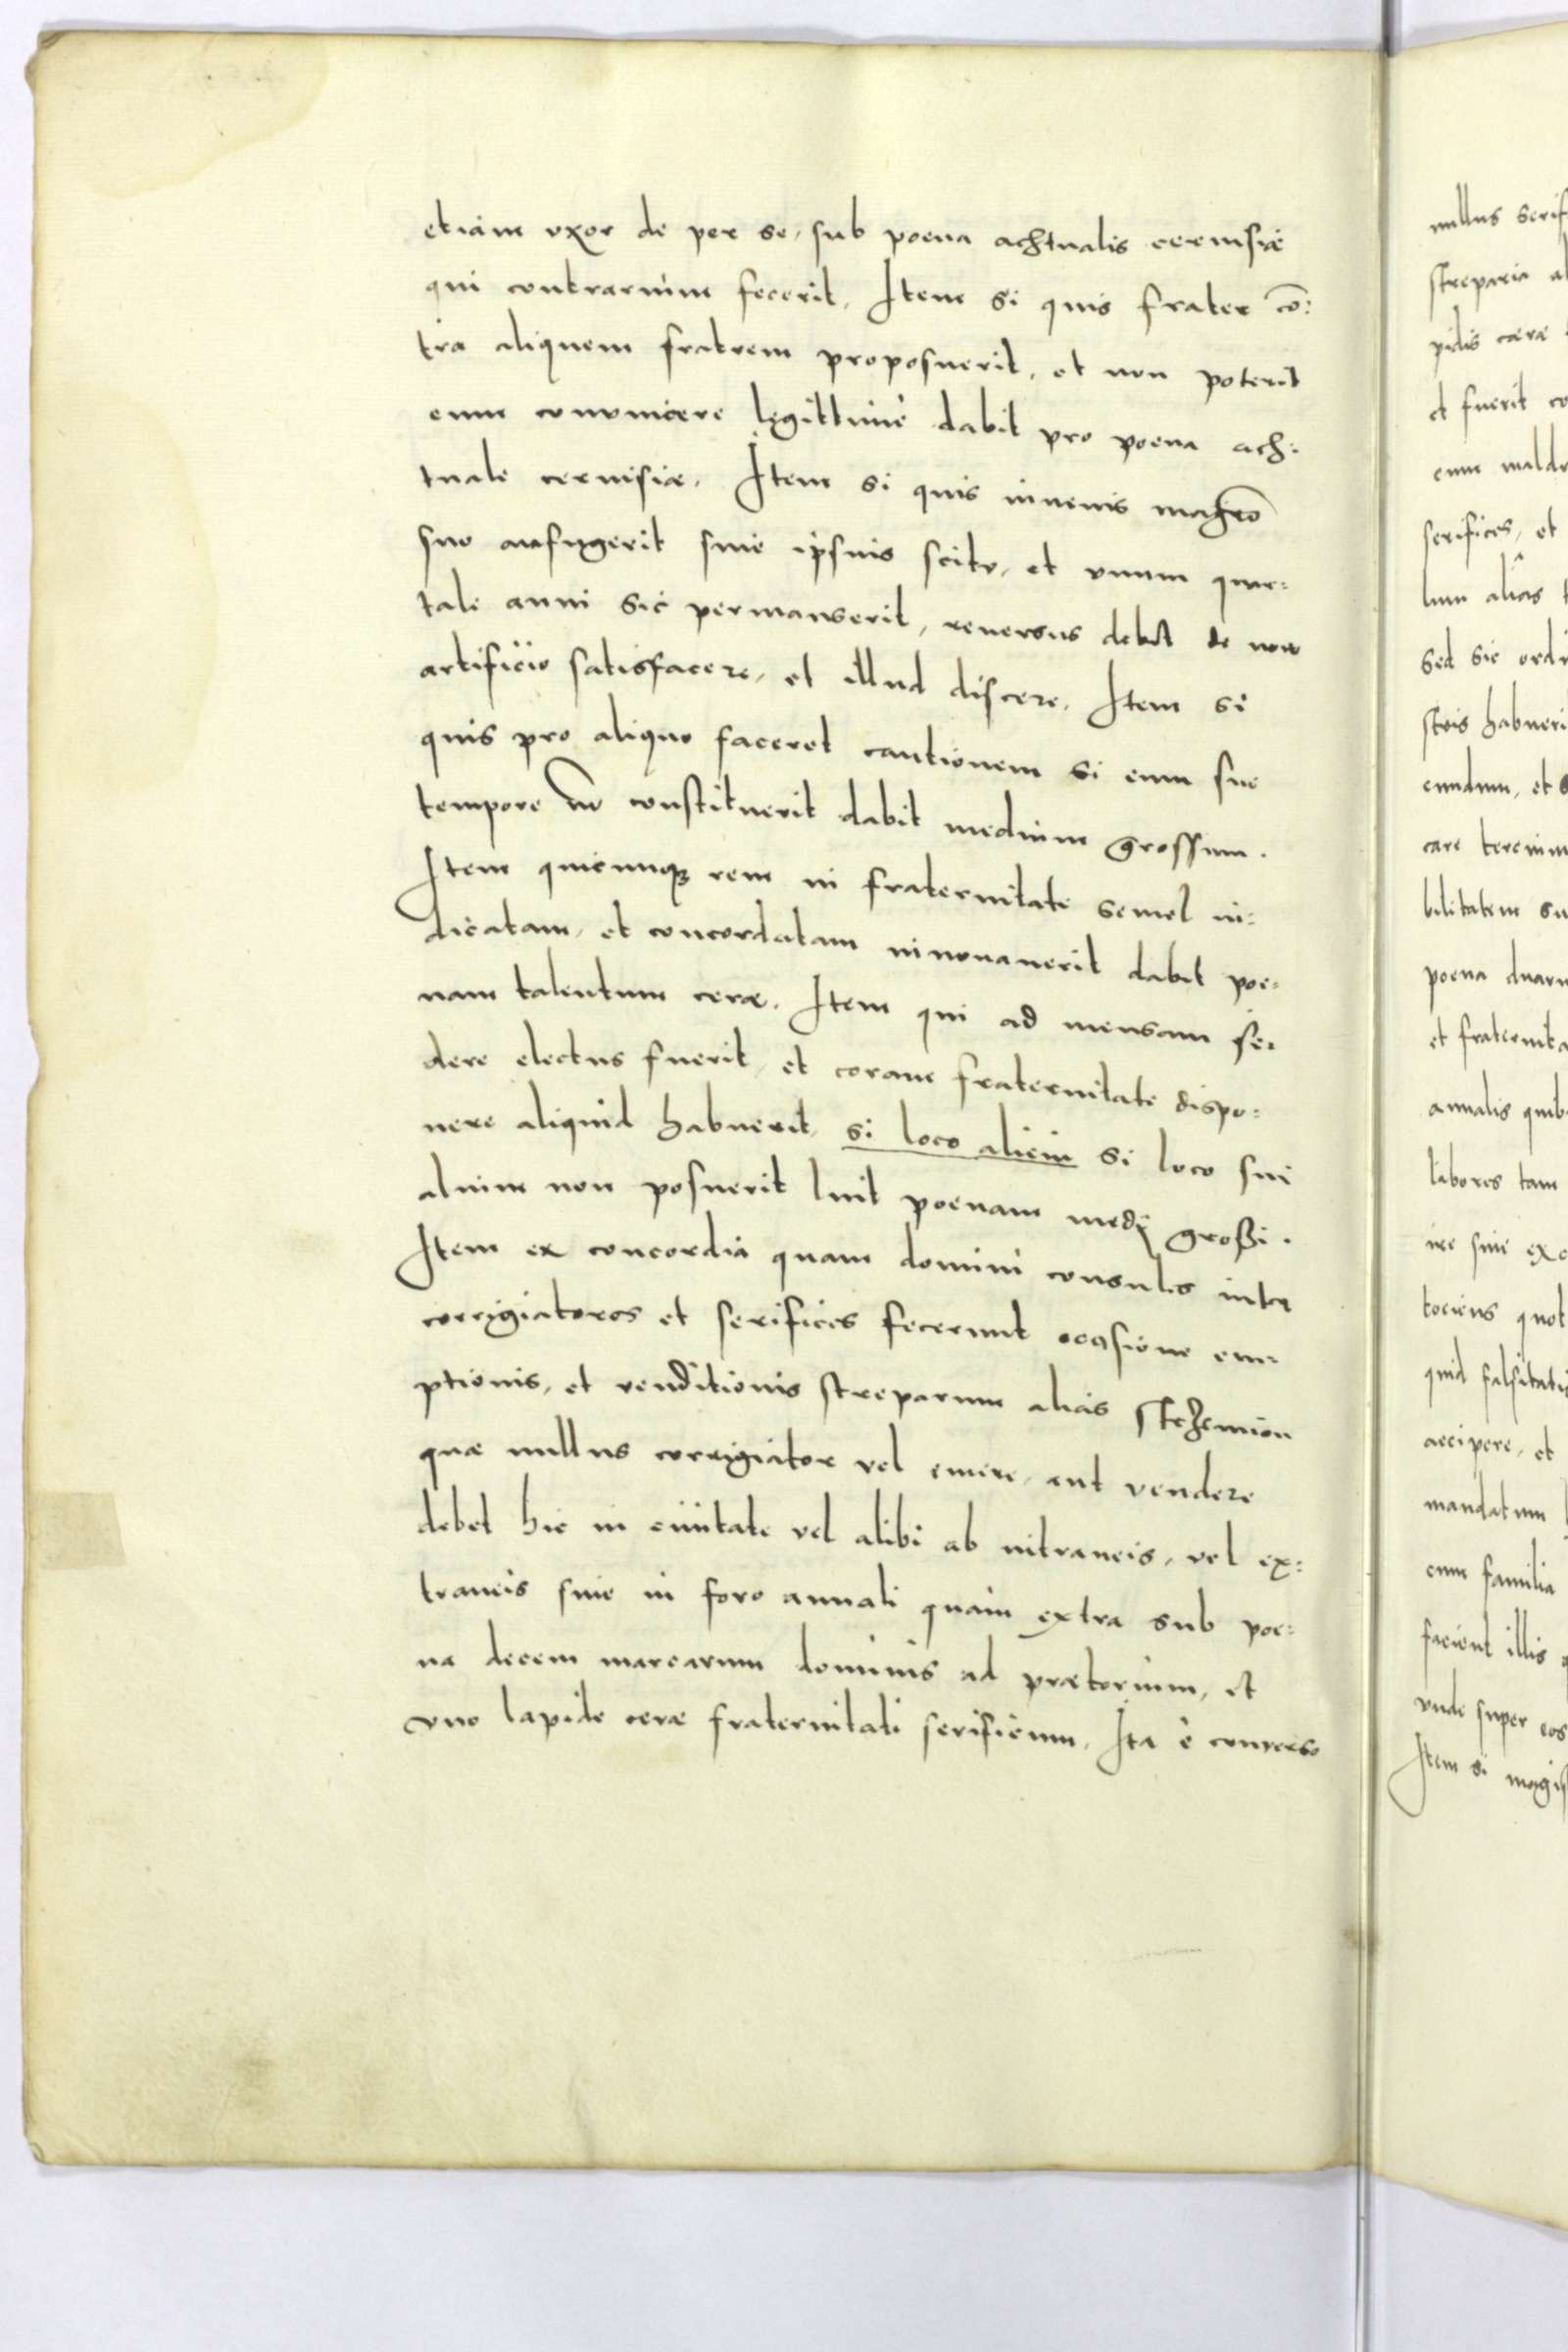 etiam uxor de per se, sub poena achtualis cervisiæ
qui contrarium fecerit. Item si quis frater cō:
tra aliquem fratrem proposuerit, et non poterit
eum convincere legittimè dabit pro poena ach:
tuale cervisiæ. Item si quis iuvenis magrō
suo aufugerit sine ipsius scitu, et unum quar:
tale anni sic permanserit, reversus debet de novo
artificio satisfacere, et illud discere. Item si
quis pro aliquo faceret cautionem si eum suo
tempore nō constituerit dabit medium grossum.
Item quicunqz rem in fraternitate semel iu:
dicatam, et concordatam innovaverit dabit poe:
nam talentum ceræ. Item qui ad mensam se:
dere electus fuerit, et coram fraternitate dispo:
nere aliquid habuerit, si loco alicui si loco sui
alium non posuerit luit poenam medij grossi.
Item ex concordia quam domini consules inter
corrigiatores et serifices fecerunt occasione em:
ptionis, et venditionis streparum alias
quæ nullus corrigiator vel emere, aut vendere
debet hic in civitate vel alibi ab intraneis, vel ex:
traneis sive in foro annali quàm extra sub poe:
na decem marcarum dominis ad prætorium, et
uno lapide ceræ fraternitati serificum. Ita è converso
nullus serif
streparia al
pidis ceræ
et fuerit co
cum valdr
serifices, et
lum aliâs
sed sic ordi
habueri
eundum, et s
care
bilitatem su
poena duaru
et fraternita
annalis quib
labores tam
ire sine exc
tociens quot
quid falsitatis
accipere, et
mandatum
cum familia
facient illis
unde super eos
Item si magis